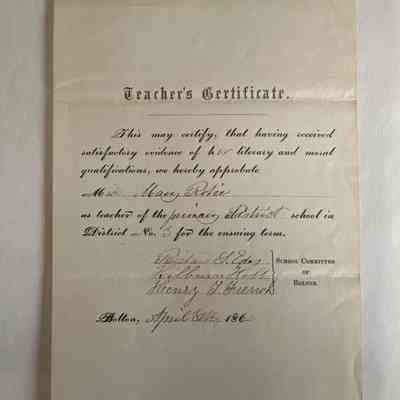 Teacher's Certificate.
This may certify, that having received
satisfactory evidence of her literary and moral
qualifications, we hereby approbate
Miss Mary
as teacher of the primary District school in
District No. 3 for the ensuing term.
Richard S. Edes
School Committee
Holt
of
Henry T. French
Bolton.
Bolton, April 186